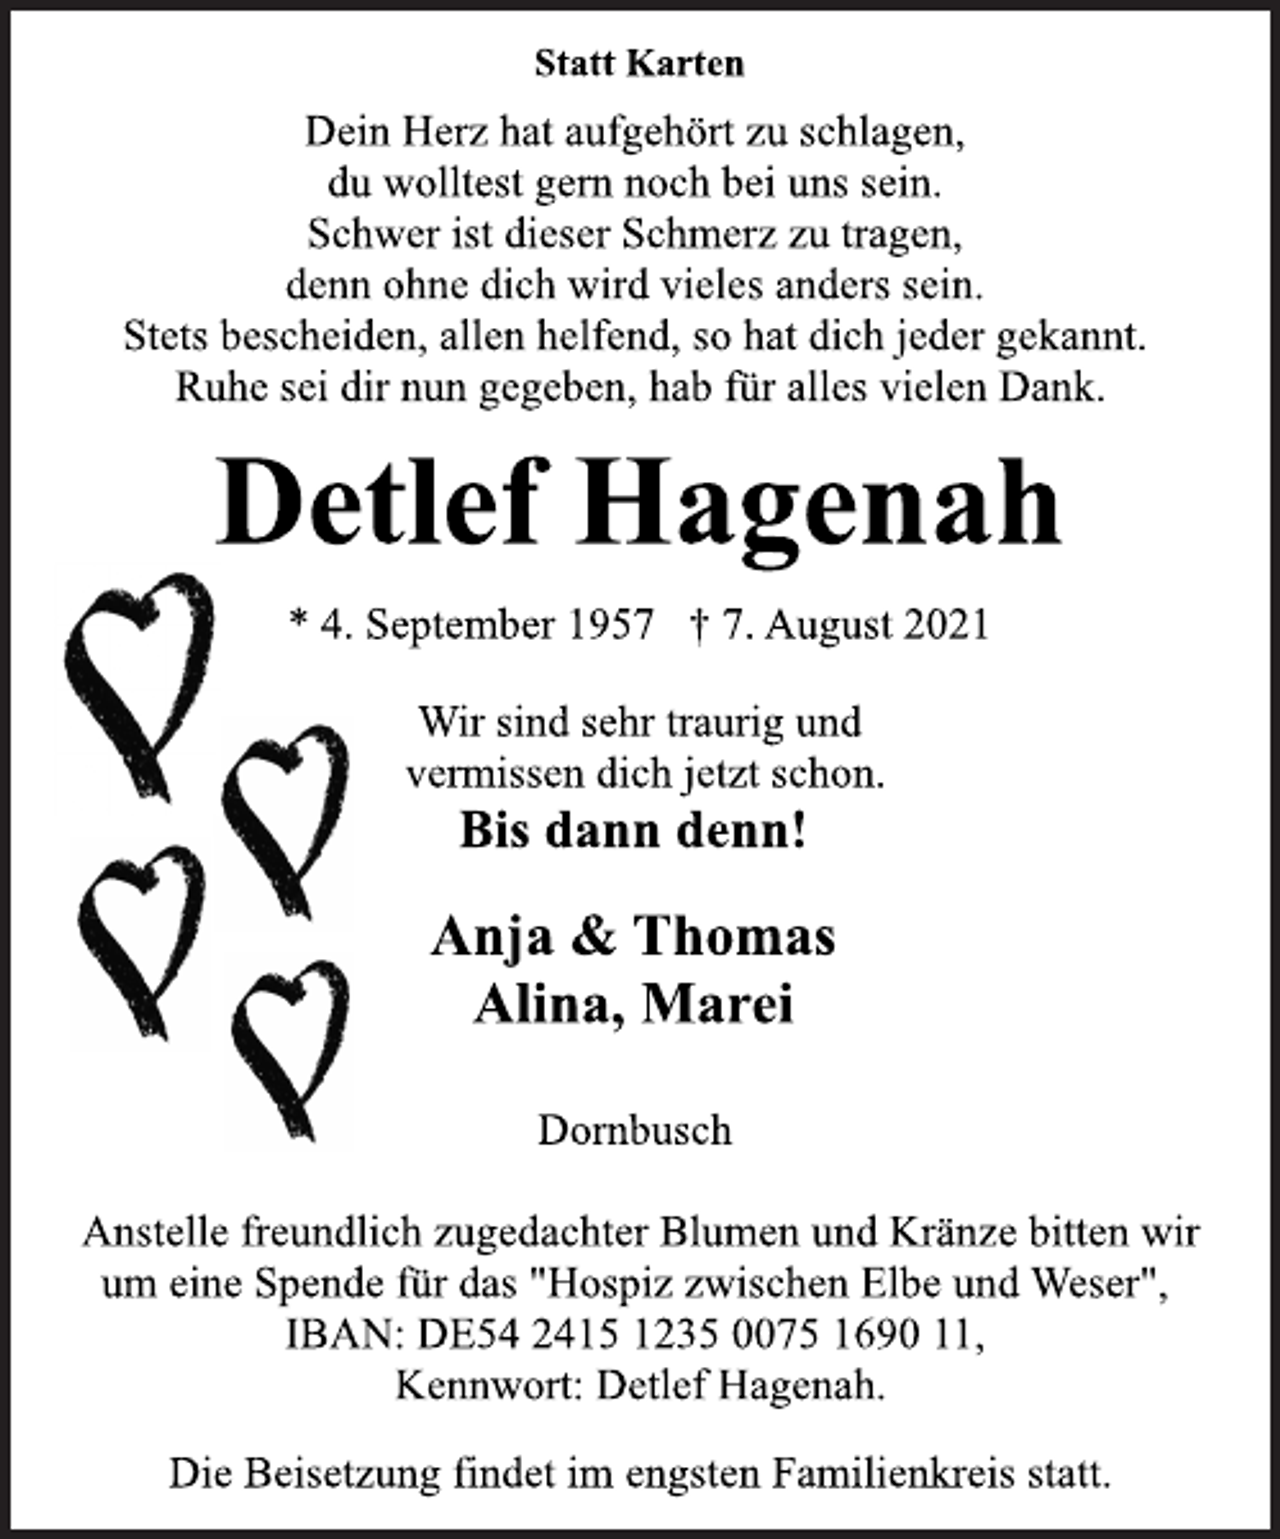 Statt Karten
Dein Herz hat aufgehört zu schlagen,
du wolltest gern noch bei uns sein.
Schwer ist dieser Schmerz zu tragen,
denn ohne dich wird vieles anders sein.
Stets bescheiden, allen helfend, so hat dich jeder gekannt.
Ruhe sei dir nun gegeben, hab für alles vielen Dank.
Detlef Hagenah
* 4. September 1957 † 7. August 2021
Wir sind sehr traurig und
vermissen dich jetzt schon.
Bis dann denn!
Anja & Thomas
Alina, Marei
Dornbusch
Anstelle freundlich zugedachter Blumen und Kränze bitten wir
um eine Spende für das "Hospiz zwischen Elbe und Weser",
IBAN: DE54 2415 1235 0075 1690 11,
Kennwort: Detlef Hagenah.
Die Beisetzung findet im engsten Familienkreis statt.